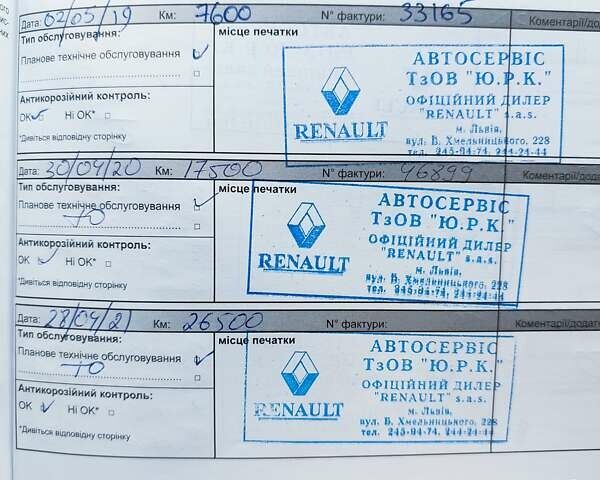 Дата: 02/05/19 Км: 7600 N° фактури: 33165 Коментарії/дода
Тип обслуговування:
Планове технічне обслуговування
місце печатки
АВТОСЕРВІС
ТзОВ "Ю.Р.К."
ОФІЦІЙНИЙ ДИЛЕР
"RENAULT" s.a.s.
м. Львів,
вул. Б. Хмельницького, 228
тел. 245-94-74, 244-24-44
RENAULT
Антикорозійний контроль:
OK Ні OK*
*Дивіться відповідну сторінку
Дата: 30/04/20 Км: 17500 N° фактури: 46899 Коментарії/дода
Тип обслуговування:
Планове технічне обслуговування
ТО
місце печатки
АВТОСЕРВІС
ТзОВ "Ю.Р.К."
ОФІЦІЙНИЙ ДИЛЕР
"RENAULT" s.a.s.
м. Львів,
вул. Б. Хмельницького, 228
тел. 245-94-74, 244-24-44
RENAULT
Антикорозійний контроль:
OK Ні OK*
*Дивіться відповідну сторінку
Дата: 28/04/21 Км: 26500 N° фактури: Коментарії/додат
Тип обслуговування:
Планове технічне обслуговування
ТО
місце печатки
АВТОСЕРВІС
ТзОВ "Ю.Р.К."
ОФІЦІЙНИЙ ДИЛЕР
"RENAULT" s.a.s.
м. Львів,
вул. Б. Хмельницького, 228
тел. 245-94-74, 244-24-44
RENAULT
Антикорозійний контроль:
OK Ні OK*
*Дивіться відповідну сторінку